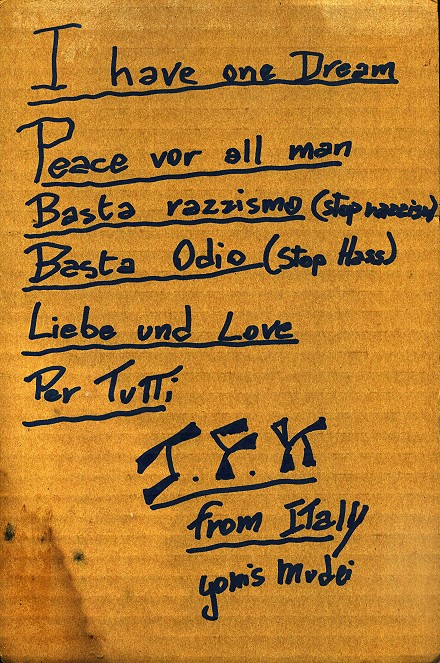 I have one Dream
Peace vor all man
Basta razzismo (stop nazzism)
Basta Odio (Stop Hass)
Liebe und Love
Per Tutti
J.F.K
from ITaly